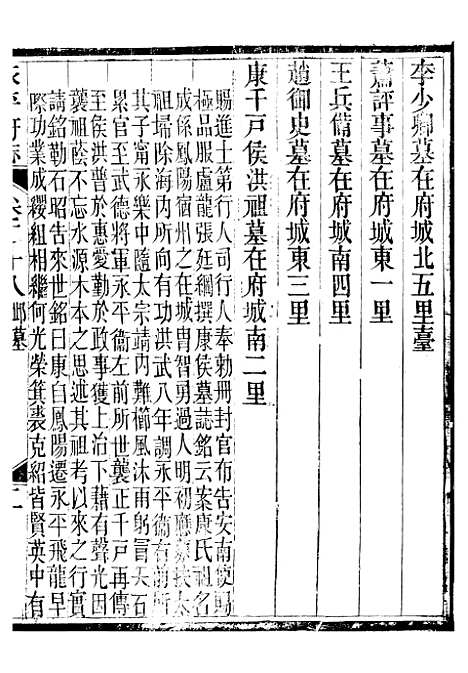 李少卿墓在府城北五里臺
蕭評事墓在府城東一里
王兵備墓在府城南四里
趙御史墓在府城東三里
康千戸侯洪祖墓在府城南二里
賜進士第行人司行人奉勅冊封官布告安南使賜
極品服盧龍張廷綱撰康侯墓誌銘云案康氏祖名
成係鳳陽宿州之在城胄智勇過人明初應募扶太
祖掃除海内所向有功洪武八年調永平衞右前所
其子甯永樂中隨太宗靖内難櫛風沐雨躬冒矢石
累官至武德將軍永平衞左前所世襲正千戸再傳
至侯洪普於惠愛勤於政事獲上治下藉有聲光因
襲祖蔭不忘水源木本之思述其祖考以來之德
請銘勒石昭告來世銘曰康自鳳陽遷永平飛龍早
際功業成纓組相繼何光榮箕裘克紹皆賢英中有
永平府志 卷二十八 邱墓